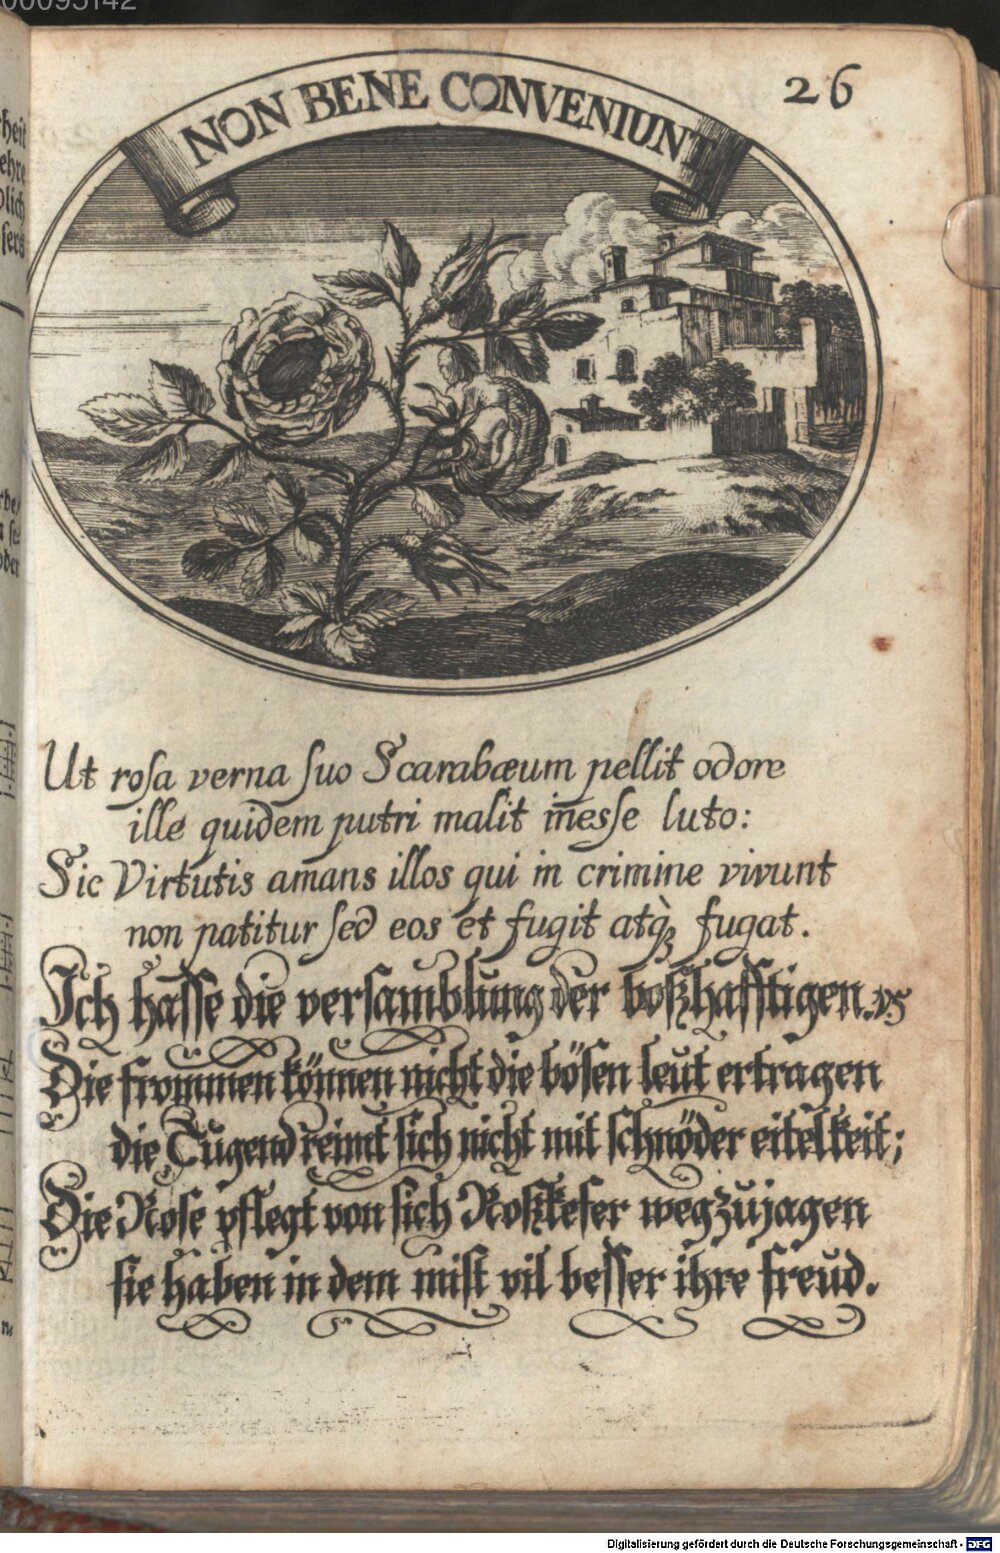 00095142
26
NON BENE CONVENIUNT
Ut rosa verna suo Scarabæum pellit odore
ille quidem putri malit inesse luto:
Sic Virtutis amans illos qui in crimine vivunt
non patitur sed eos et fugit atqꝫ fugat.
Ich hasse die versamblung der boßhafftigen. ps
Die frommen können nicht die bösen leut ertragen
die Tugend reimt sich nicht mit schnöder eitelkeit;
Die Rose pflegt von sich Roßkefer wegzujagen
sie haben in dem mist vil besser ihre freud.
heit
ehre
lich
sers
Digitalisierung gefördert durch die Deutsche Forschungsgemeinschaft - DFG